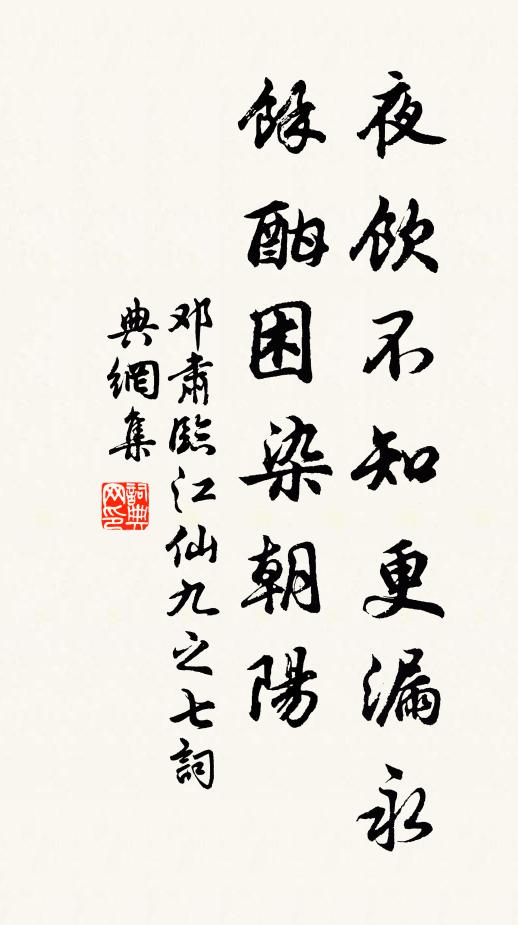 夜飲不知更漏永
餘酣困染朝陽
邓肅臨江仙九之七詞
典網集
詞典
网印